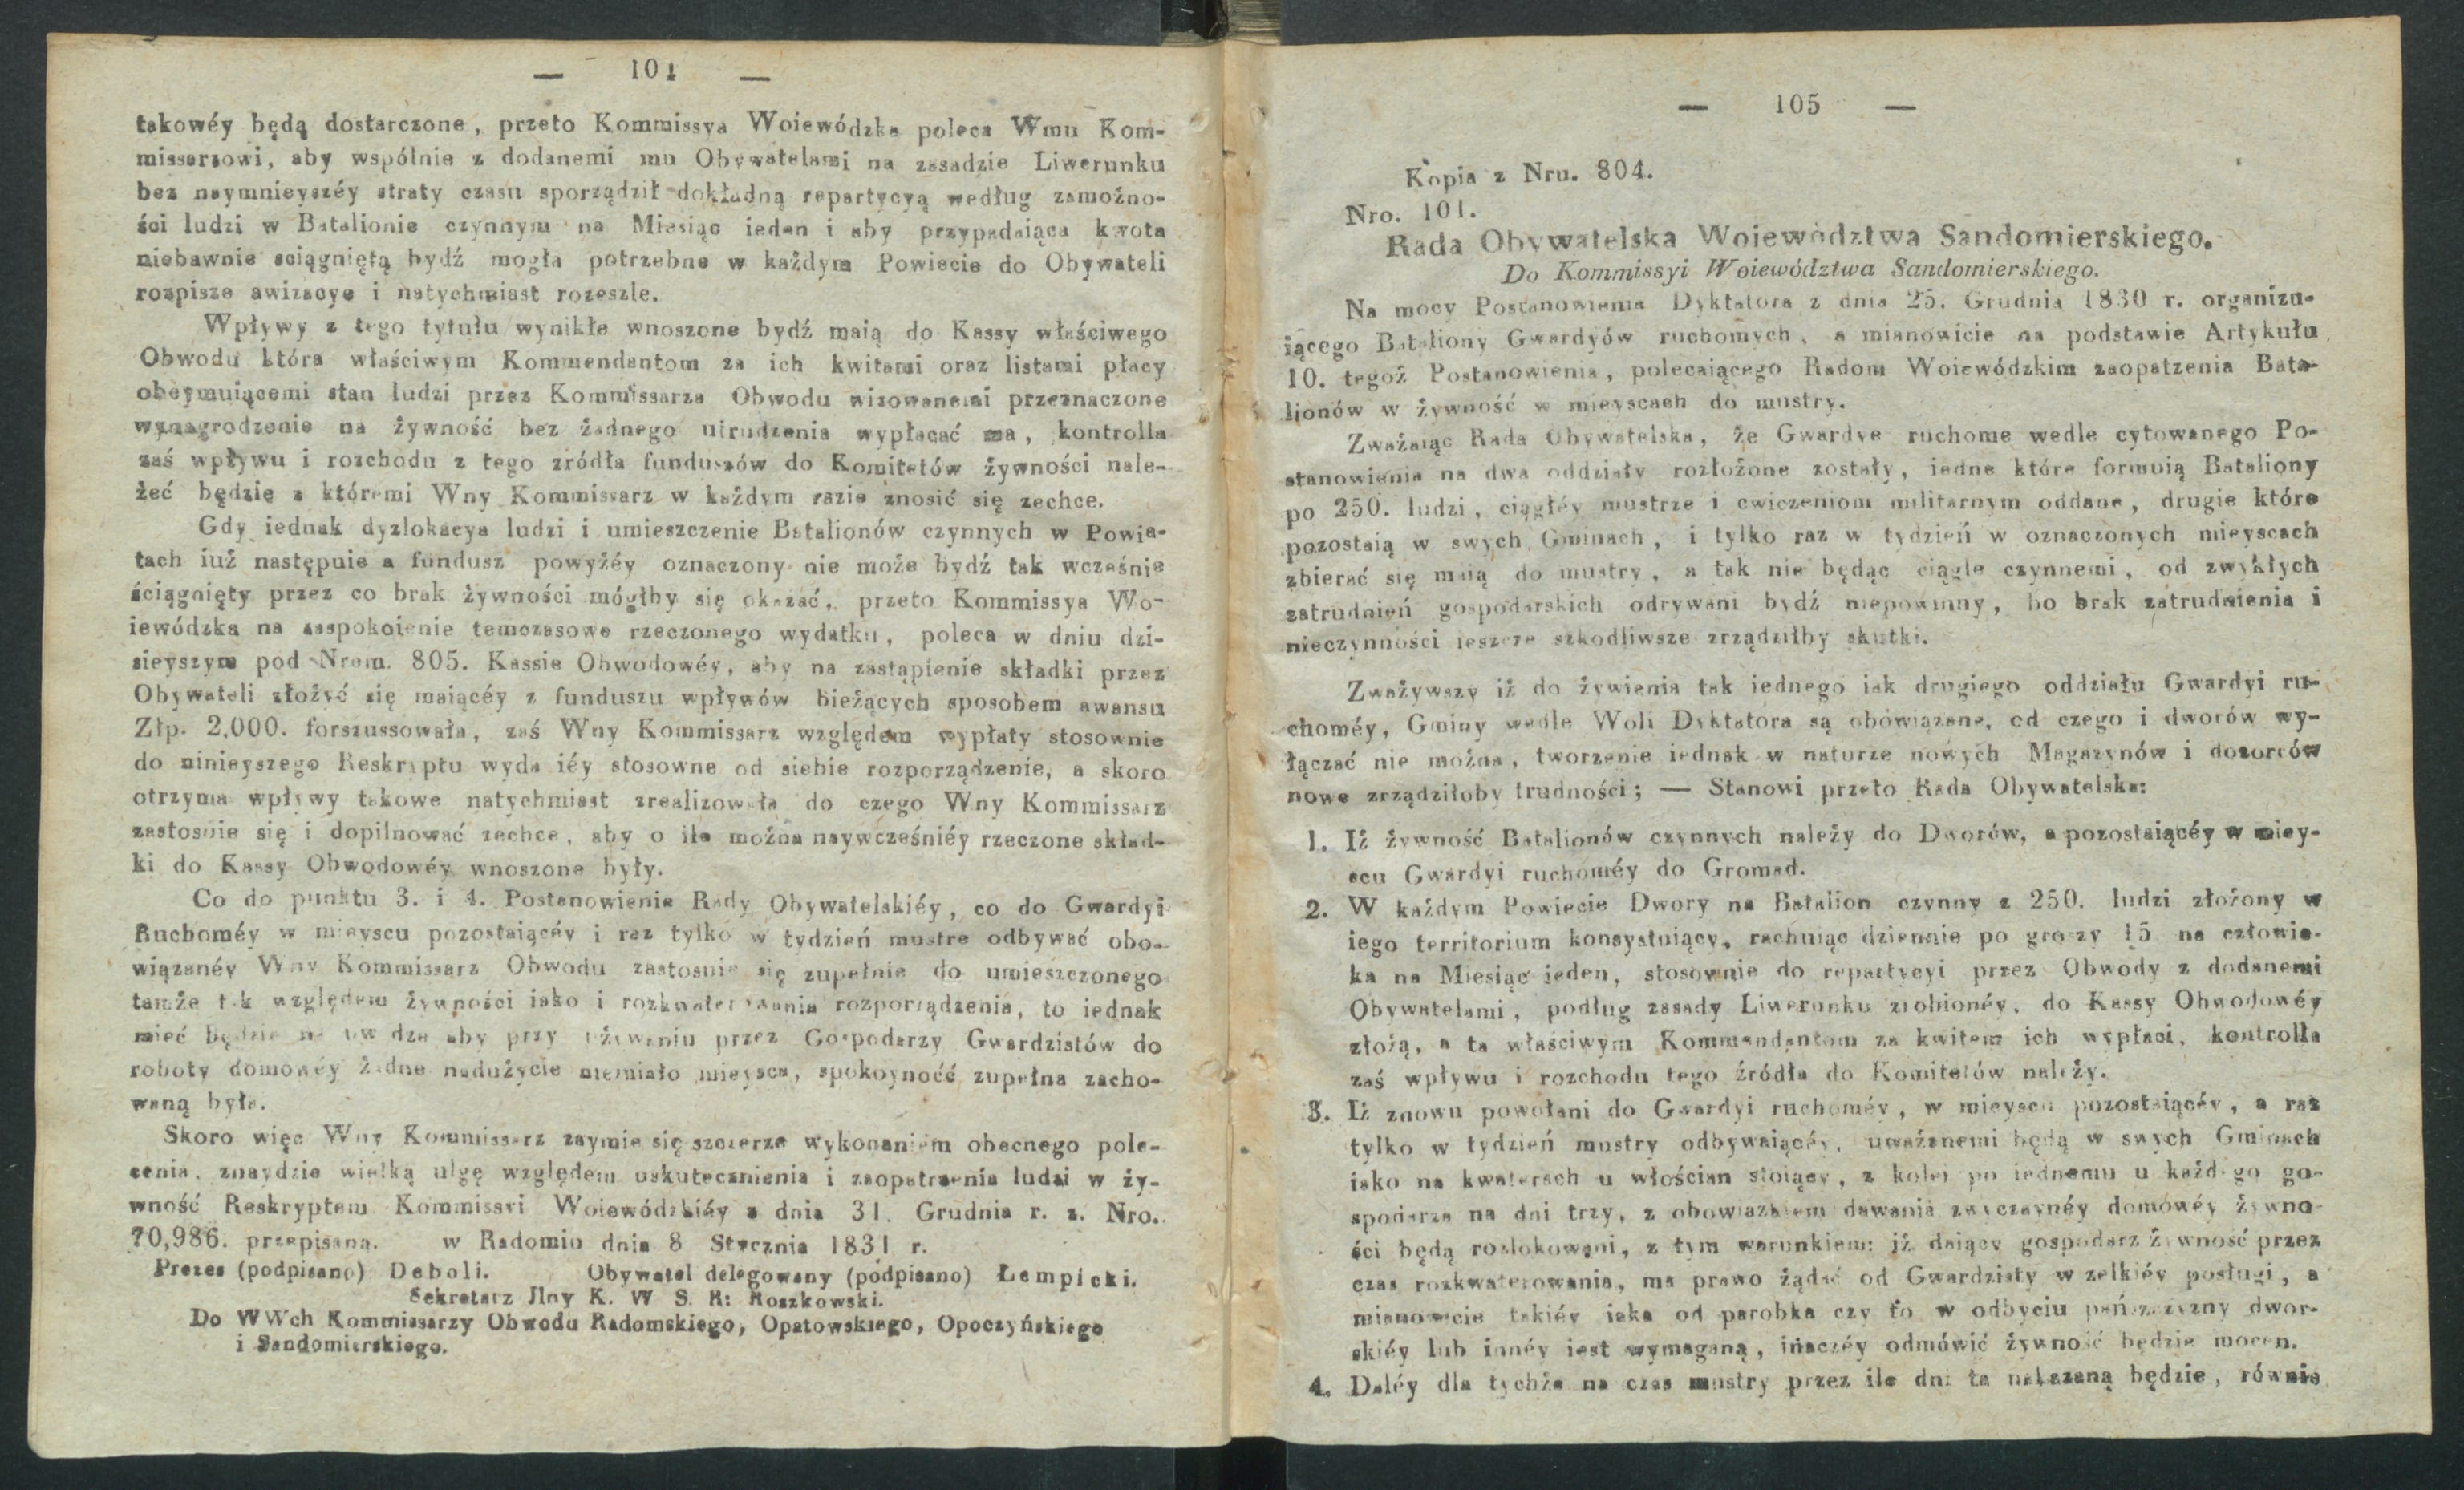 — 104 —
takowéy będą dostarczone, przeto Kommissya Woiewódzka poleca Wmu Kom-
missarzowi, aby wspólnie z dodanemi mu Obywatelami na zasadzie Liwerunku
bez naymnieyszéy straty czasu sporządził dokładną repartycyą według zamożno-
ści ludzi w Batalionie czynnym na Miesiąc ieden i aby przypadaiąca kwota
niebawnie sciągniętą bydź mogła potrzebne w każdym Powiecie do Obywateli
rozpisze awizacye i natychmiast rozeszle.
Wpływy z tego tytułu wynikłe wnoszone bydź maią do Kassy właściwego
Obwodu która właściwym Kommendantom za ich kwitami oraz listami płacy
obeymuiącemi stan ludzi przez Kommissarza Obwodu wizowanemi przeznaczone
wynagrodzenie na żywność bez żadnego utrudzenia wypłacać ma, kontrolla
zaś wpływu i rozchodu z tego zródła funduszów do Komitetów żywności nale-
żeć będzię z któremi Wny Kommissarz w każdym razie znosić się zechce.
Gdy iednak dyzlokacya ludzi i umieszczenie Batalionów czynnych w Powia-
tach iuż następuie a fundusz powyżéy oznaczony nie może bydź tak wcześnie
ściągnięty przez co brak żywności mógłby się okazać, przeto Kommissya Wo-
iewódzka na zaspokoienie temczasowe rzeczonego wydatku, poleca w dniu dzi-
sieyszym pod Nrem. 805. Kassie Obwodowéy, aby na zastąpienie składki przez
Obywateli złożyć się maiącéy z funduszu wpływów bieżących sposobem awansu
Złp. 2,000. forszussowała, zaś Wny Kommissarz względem wypłaty stosownie
do ninieyszego Reskryptu wyda iéy stosowne od siebie rozporządzenie, a skoro
otrzyma wpływy takowe natychmiast zrealizowała do czego Wny Kommissarz
zastosuie się i dopilnować zechce, aby o ile można naywcześniéy rzeczone skład-
ki do Kassy Obwodowéy wnoszone były.
Co do punktu 3. i 4. Postanowienia Rady Obywatelskiéy, co do Gwardyi
Ruchoméy w mieyscu pozostaiącéy i raz tylko w tydzień mustrę odbywać obo-
wiązanéy Wny Kommissarz Obwodu zastosuie się zupełnie do umieszczonego
tamże tak względem żywności iako i rozkwaterowania rozporządzenia, to iednak
mieć będzie na uwadze aby przy używaniu przez Gospodarzy Gwardzistów do
roboty domowéy żadne nadużycie niemiało mieysca, spokoyność zupełna zacho-
waną była.
Skoro więc Wny Kommissarz zaymie się szczerze wykonaniem obecnego pole-
cenia, znaydzie wielką ulgę względem uskutecznienia i zaopatrzenia ludzi w ży-
wność Reskryptem Kommissyi Woiewódzkiéy z dnia 31. Grudnia r. z. Nro.
70,986. przepisaną. w Radomiu dnia 8 Stycznia 1831 r.
Prezes (podpisano) Deboli. Obywatel delegowany (podpisano) Łempicki.
Sekretarz Jlny K. W S. R: Roszkowski.
Do WWch Kommissarzy Obwodu Radomskiego, Opatowskiego, Opoczyńskiego
i Sandomierskiego.
— 105 —
Kopia z Nru. 804.
Nro. 101.
Rada Obywatelska Woiewództwa Sandomierskiego.
Do Kommissyi Woiewództwa Sandomierskiego.
Na mocy Postanowienia Dyktatora z dnia 25. Grudnia 1830 r. organizu-
iącego Bataliony Gwardyów ruchomych, a mianowicie na podstawie Artykułu
10. tegoż Postanowienia, polecaiącego Radom Woiewódzkim zaopatzenia Bata-
lionów w żywność w mieyscach do mustry.
Zważaiąc Rada Obywatelska, że Gwardye ruchome wedle cytowanego Po-
stanowienia na dwa oddziały rozłożone zostały, iedne które formuią Bataliony
po 250. ludzi, ciągłéy mustrze i cwiczeniom militarnym oddane, drugie które
pozostaią w swych Gminach, i tylko raz w tydzień w oznaczonych mieyscach
zbierać się maią do mustry, a tak nie będąc ciągle czynnemi, od zwykłych
zatrudnień gospodarskich odrywani bydź niepowinny, bo brak zatrudnienia i
nieczynności ieszcze szkodliwsze zrządziłby skutki.
Zważywszy iż do żywienia tak iednego iak drugiego oddziału Gwardyi ru-
choméy, Gminy wedle Woli Dyktatora są obowiązane, od czego i dworów wy-
łączać nie można, tworzenie iednak w naturze nowych Magazynów i dozorców
nowe zrządziłoby trudności; — Stanowi przeto Rada Obywatelska:
1. Iż żywność Batalionów czynnych należy do Dworów, a pozostaiącéy w miey-
scu Gwardyi ruchoméy do Gromad.
2. W każdym Powiecie Dwory na Batalion czynny z 250. ludzi złożony w
iego territorium konsystuiący, rachuiąc dziennie po groszy 15 na człowie-
ka na Miesiąc ieden, stosownie do repartycyi przez Obwody z dodanemi
Obywatelami, podług zasady Liwerunku zrobionéy, do Kassy Obwodowéy
złożą, a ta właściwym Kommendantom za kwitem ich wypłaci, kontrolla
zaś wpływu i rozchodu tego źródła do Komitetów należy.
3. Iż znowu powołani do Gwardyi ruchoméy, w mieyscu pozostaiącéy, a raz
tylko w tydzień mustry odbywaiącéy, uważanemi będą w swych Gminach
iako na kwaterach u włościan stoiący, z kolei po iednemu u każdego go-
spodarza na dni trzy, z obowiązkiem dawania zwyczaynéy domowéy żywno-
ści będą rozlokowani, z tym warunkiem: iż daiący gospodarz żywność przez
czas rozkwaterowania, ma prawo żądać od Gwardzisty wzelkiéy posługi, a
mianowicie takiéy iaka od parobka czy to w odbyciu pańszczyzny dwor-
skiéy lub innéy iest wymaganą, inaczéy odmówić żywność będzie mocen.
4. Daléy dla tychże na czas mustry przez ile dni ta nakazaną będzie, równie